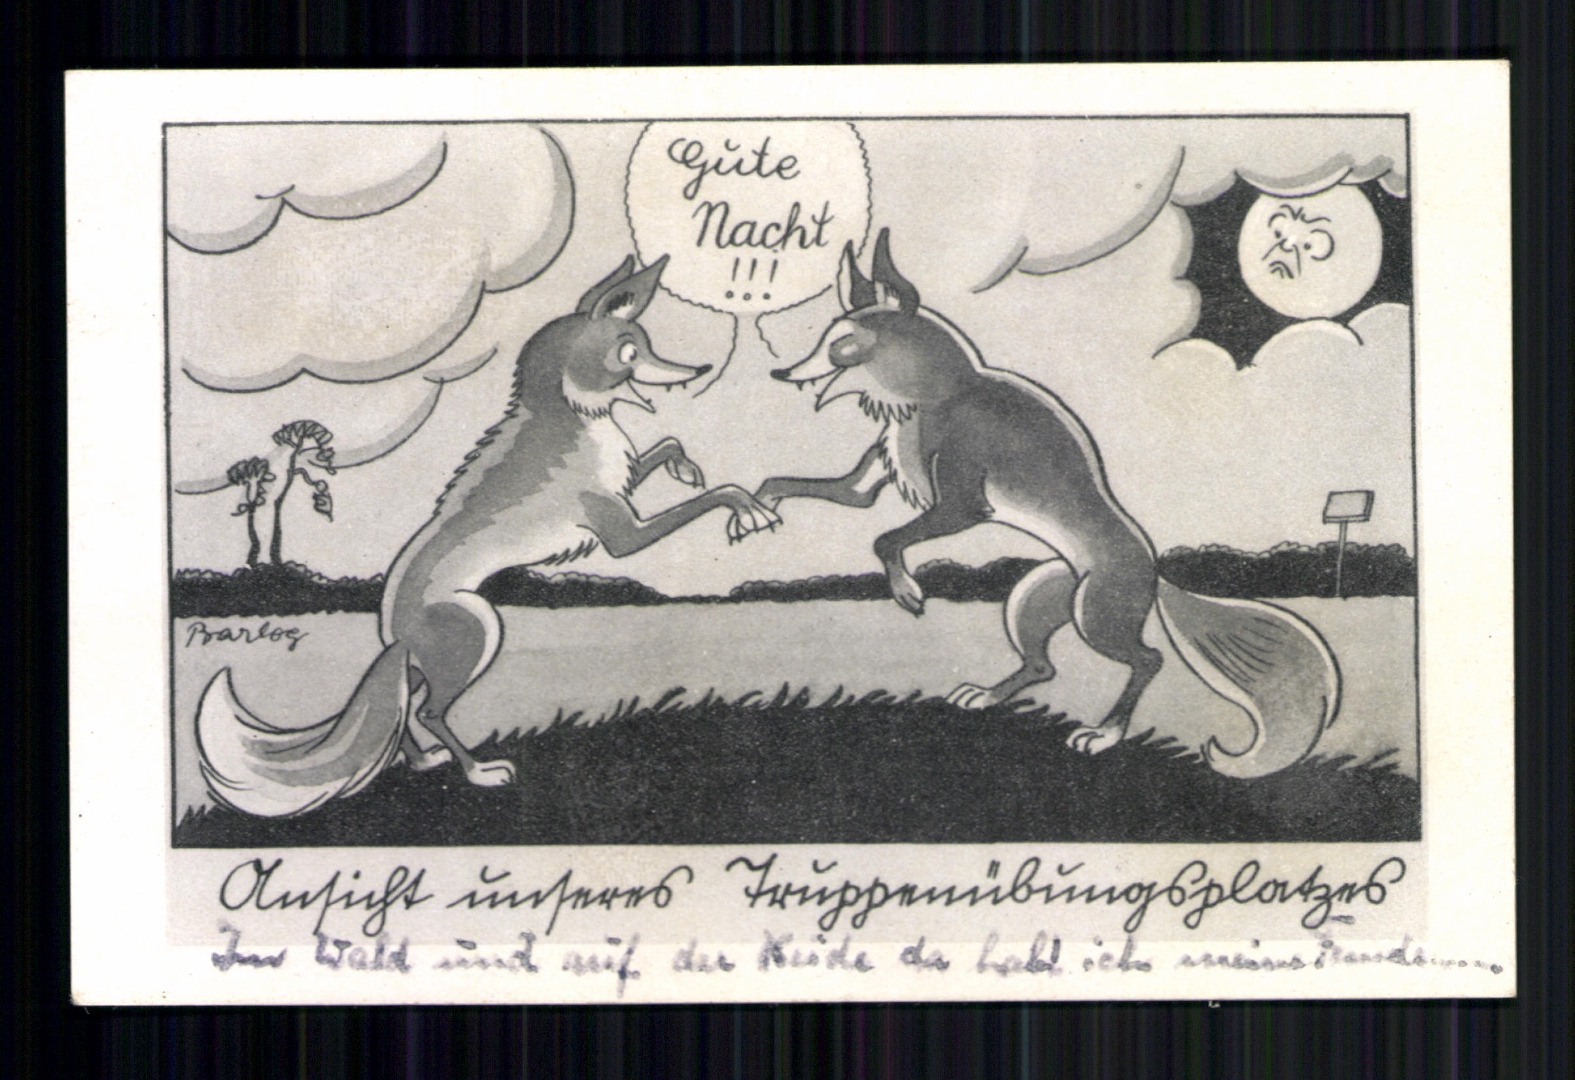 Gute
Nacht
!!!
Barlog
Ansicht unseres Truppenübungsplatzes
Im Wald und auf der Heide da hab' ich meine Freude.....